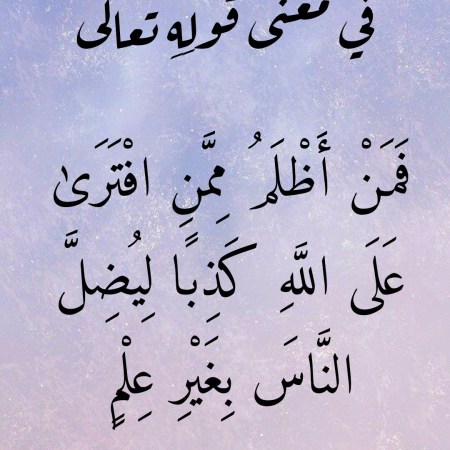 في معنى قولِهِ تعالى
فَمَنْ أَظْلَمُ مِمَّنِ افْتَرَىٰ
عَلَى اللَّهِ كَذِبًا لِيُضِلَّ
النَّاسَ بِغَيْرِ عِلْمٍ